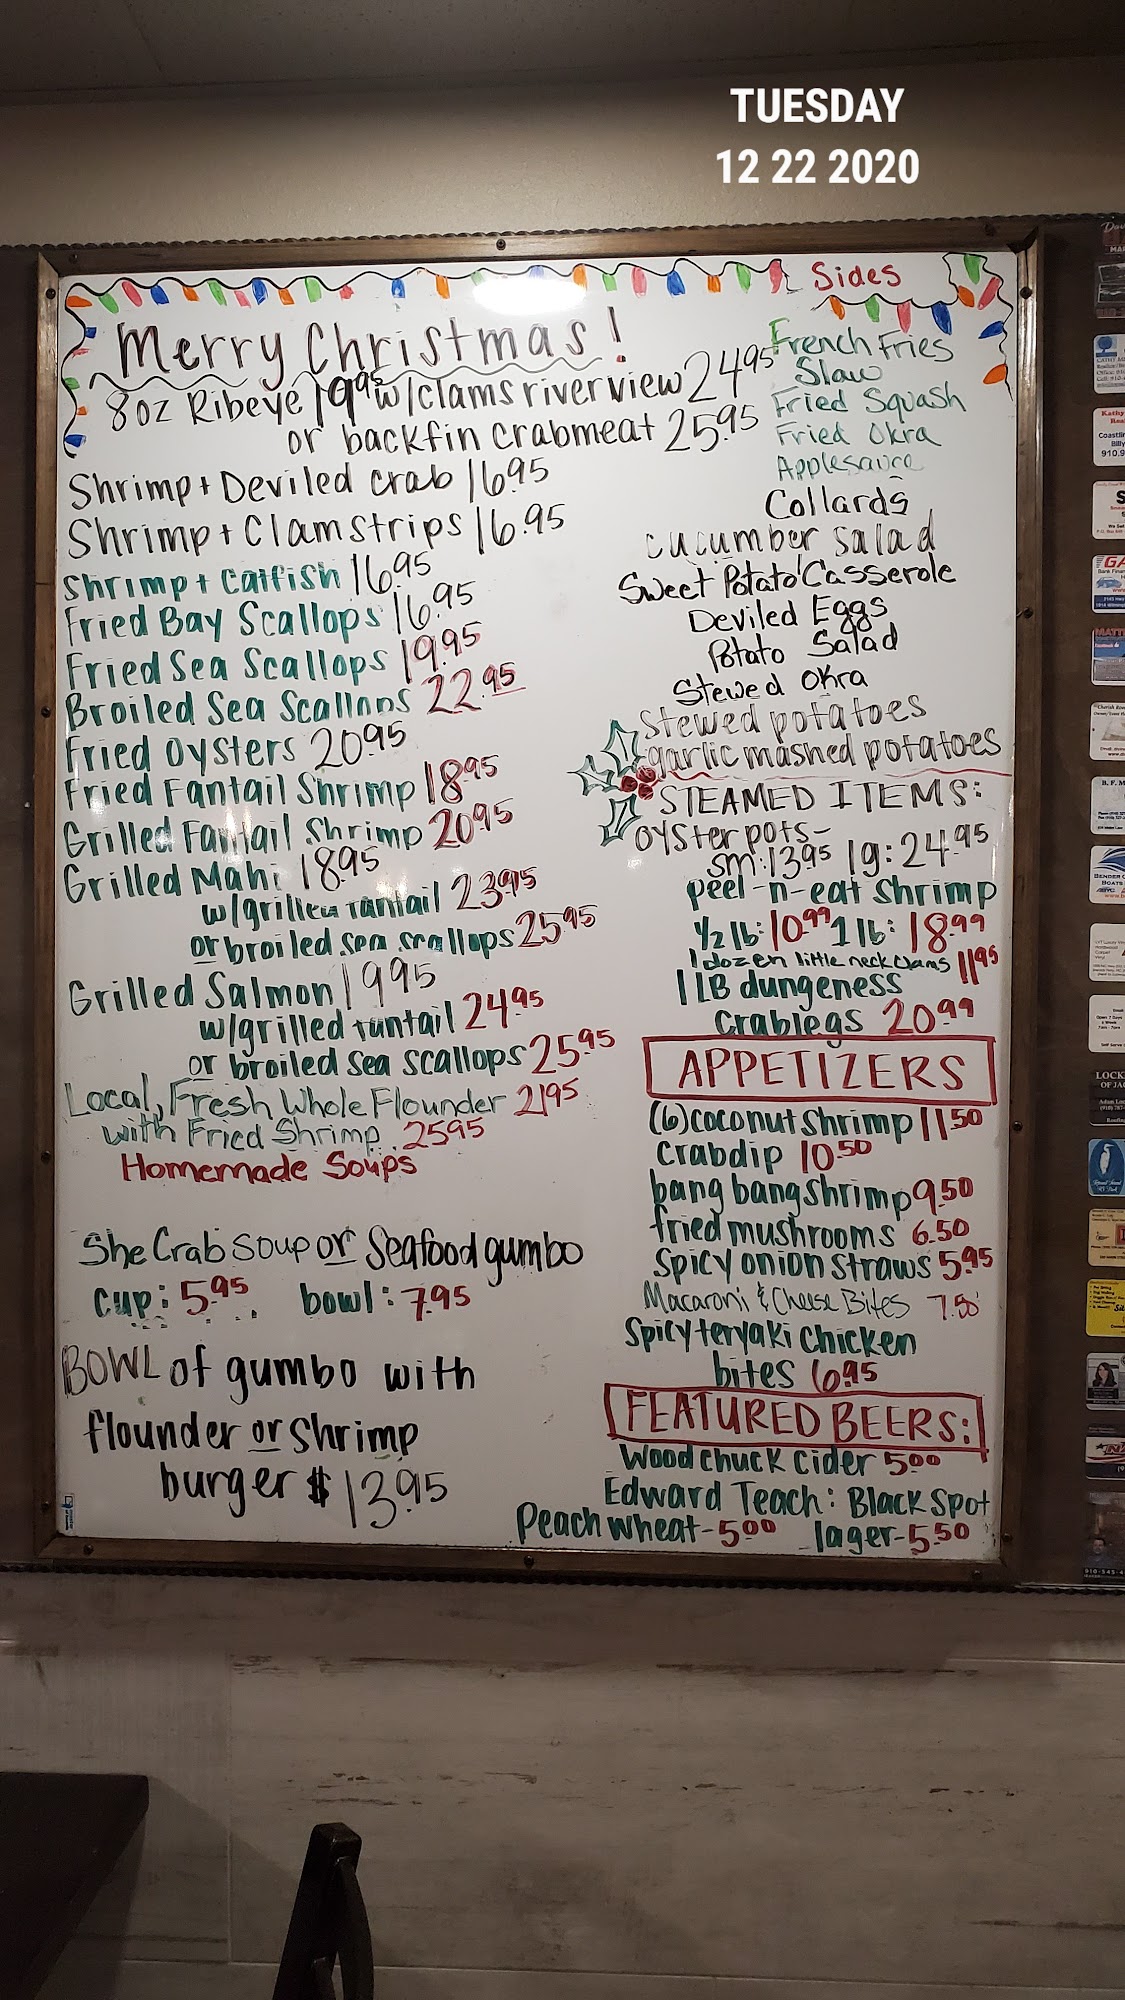 TUESDAY
12 22 2020
Merry Christmas!
8oz Ribeye 19.95 w/clams riverview 24.95
or backfin crabmeat 25.95
Shrimp + Deviled crab 16.95
Shrimp + Clamstrips 16.95
Shrimp + Catfish 16.95
Fried Bay Scallops 16.95
Fried Sea Scallops 19.95
Broiled Sea Scallops 22.95
Fried Oysters 20.95
Fried Fantail Shrimp 18.95
Grilled Fantail Shrimp 20.95
Grilled Mahi 18.95
w/grilled fantail 23.95
or broiled sea scallops 25.95
Grilled Salmon 19.95
w/grilled fantail 24.95
or broiled sea scallops 25.95
Local, Fresh Whole Flounder 21.95
with Fried Shrimp 25.95
Homemade Soups
She Crab Soup or Seafood gumbo
cup: 5.95 bowl: 7.95
BOWL of gumbo with
flounder or shrimp
burger $13.95
Sides
French Fries
Slaw
Fried Squash
Fried Okra
Applesauce
Collards
cucumber salad
Sweet Potato Casserole
Deviled Eggs
Potato Salad
Stewed Okra
Stewed potatoes
garlic mashed potatoes
STEAMED ITEMS:
oyster pots-
sm: 13.95 lg: 24.95
peel-n-eat shrimp
1/2 lb: 10.99 1 lb: 18.99
1 dozen little neck clams 11.95
1 LB dungeness
Crablegs 20.99
APPETIZERS
(6) coconut shrimp 11.50
Crabdip 10.50
bang bang shrimp 9.50
fried mushrooms 6.50
Spicy onion straws 5.95
Macaroni & Cheese Bites 7.50
Spicy teryaki Chicken
bites 6.95
FEATURED BEERS:
Woodchuck Cider 5.00
Edward Teach: Black Spot
Peach wheat-5.00 lager-5.50